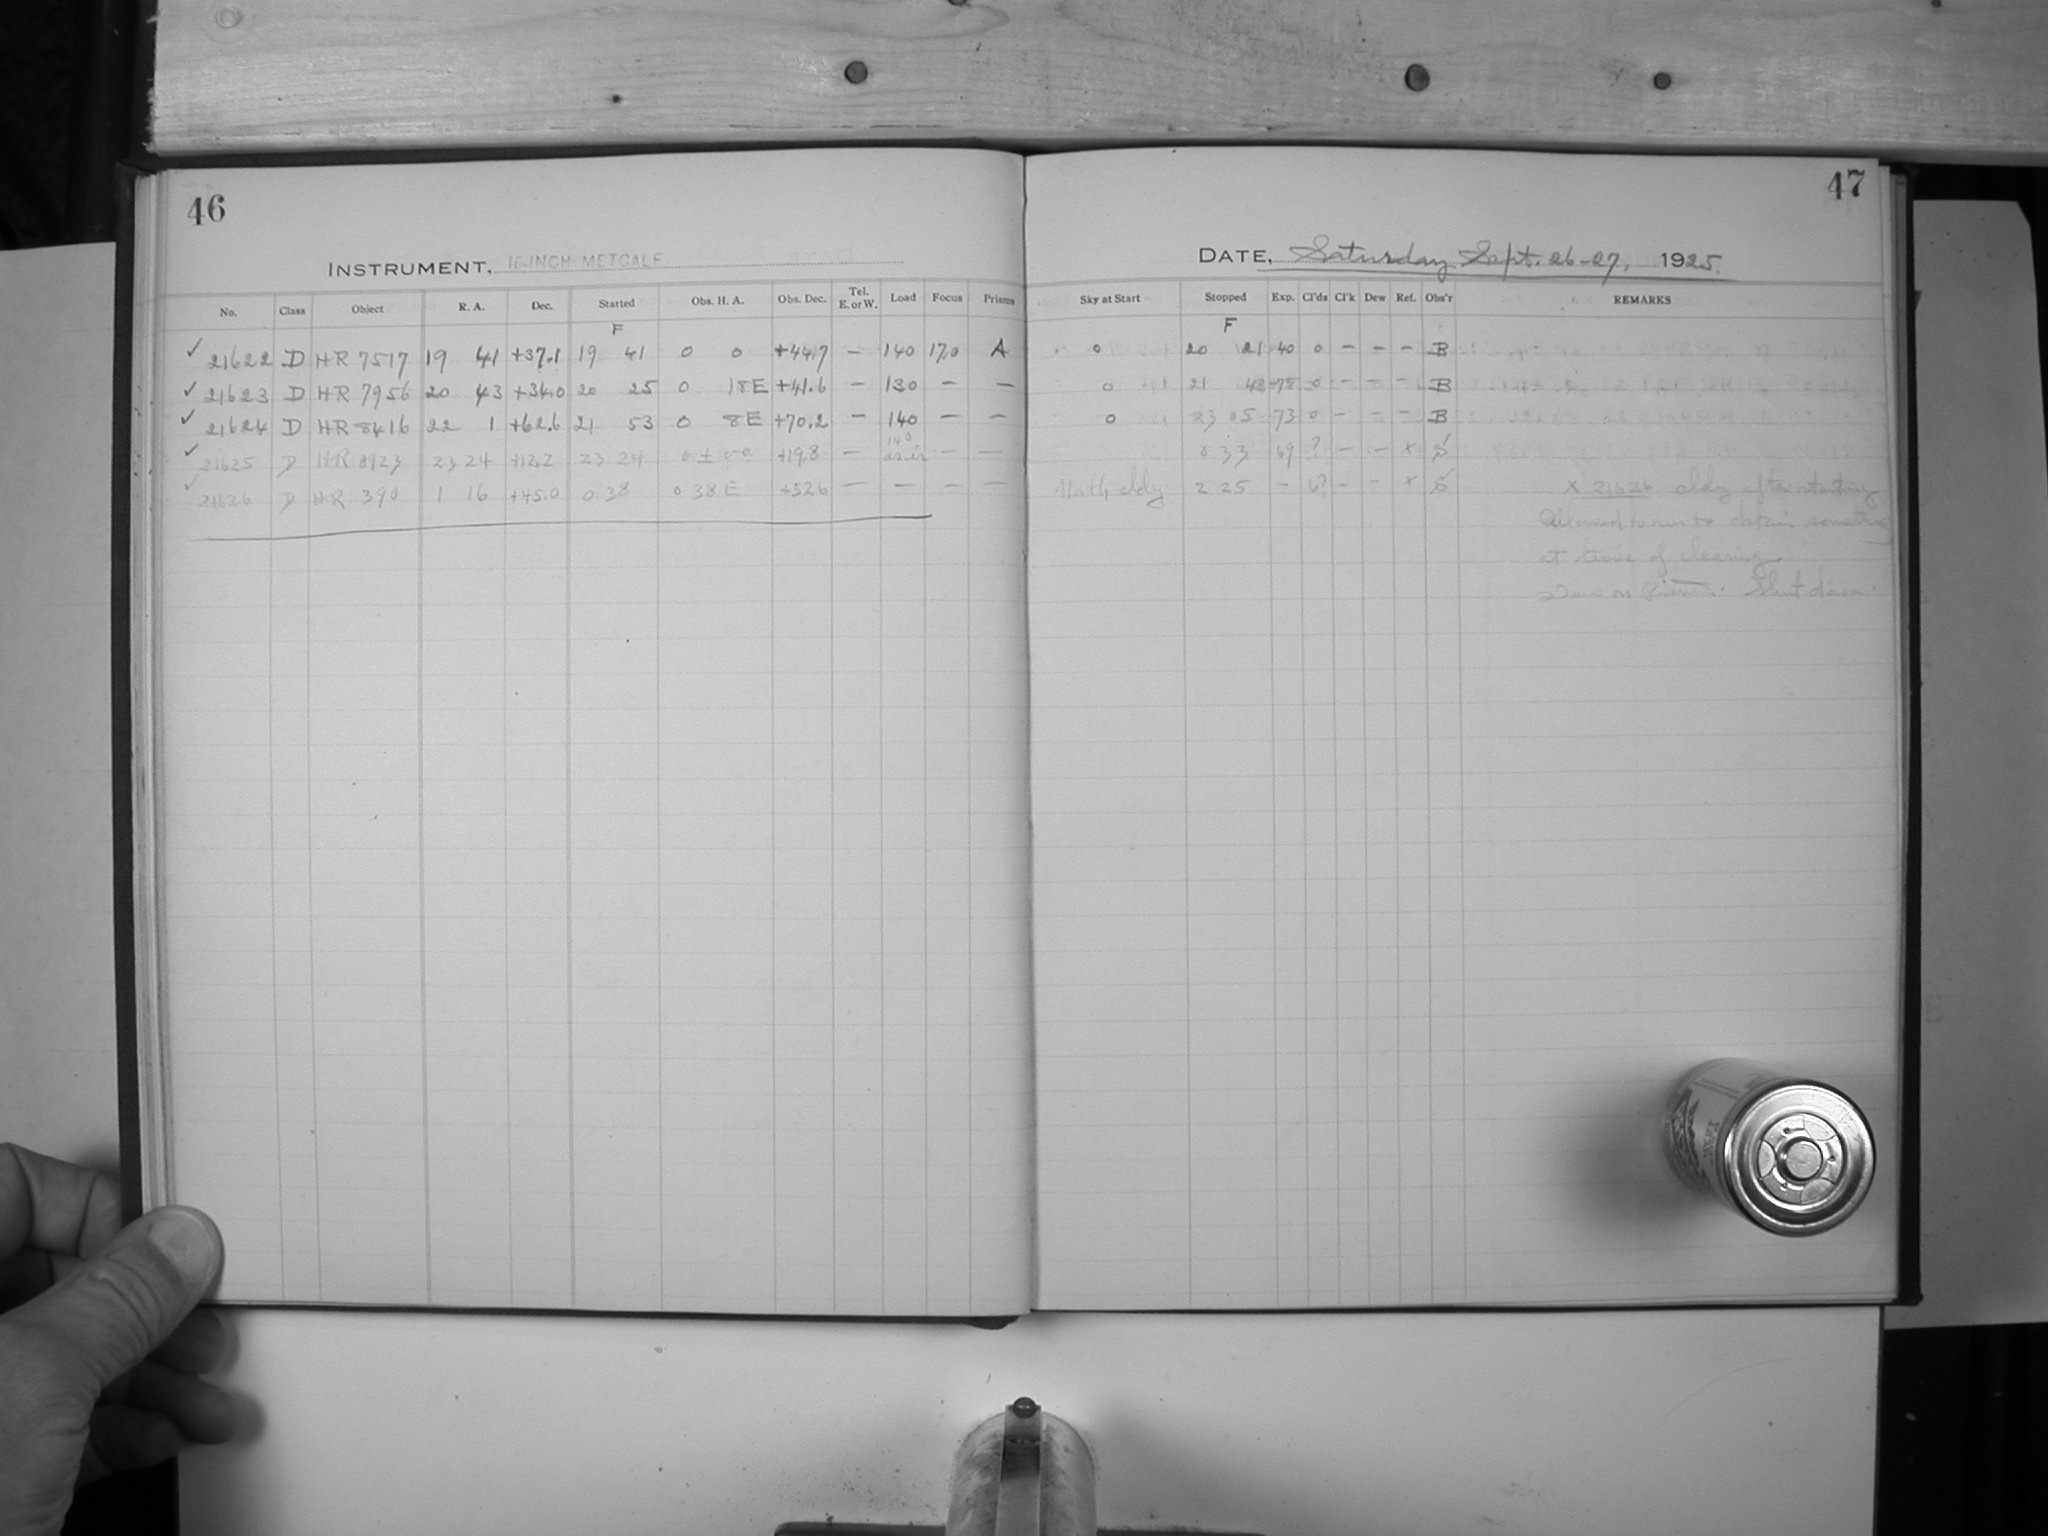 46
INSTRUMENT, 16-INCH METCALF
No. Class Object R. A. Dec. Started Obs. H. A. Obs. Dec. Tel. E. or W. Load Focus Prisms
F
✓ 21622 D HR 7517 19 41 +37.1 19 41 0 0 +44.7 – 140 17.0 A
✓ 21623 D HR 7956 20 43 +34.0 20 25 0 18E +41.6 – 130 – –
✓ 21624 D HR 8416 22 1 +62.6 21 53 0 8E +70.2 – 140 – –
✓ 21625 D HR 8923 23 24 +12.2 23 24 0 ± +19.8 – 140 – –
✓ 21626 D HR 390 1 16 +45.0 0 38 0 38E +52.6 – – – –
47
DATE, Saturday Sept. 26-27, 1925.
Sky at Start Stopped Exp. Cl'ds Cl'k Dew Ref. Obs'r REMARKS
F
0 20 21 40 0 – – – B
0 21 43 78 0 – – – B
0 23 05 73 0 – – – B
0 33 69 ? – – x
cldy 2 25 – 6? – – x X 21626 cldy after starting
Allowed to run to obtain something
at of clearing
on Prism. Shut down.